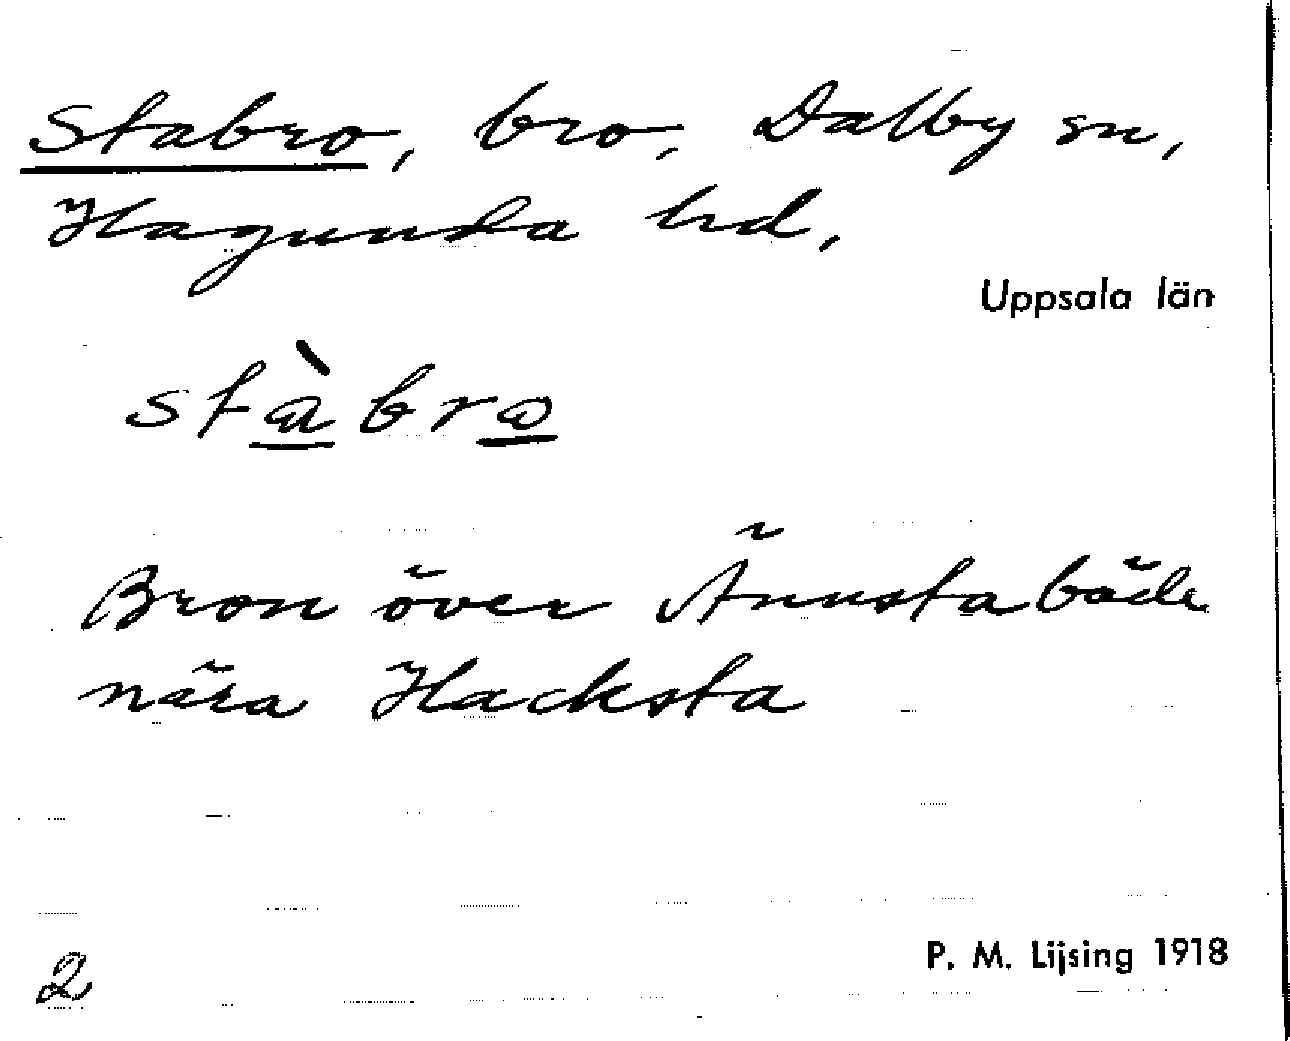 Stabro, bro, Dalby sn,
Hagunda hd,
Uppsala län
stàbro
Bron över Ännstabäde
nära Hacksta
2
P. M. Lijsing 1918